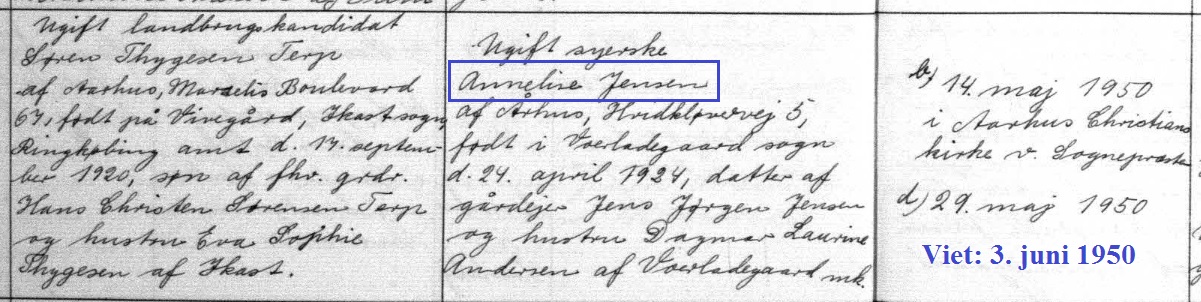 Ugift landbrugskandidat
Søren Thygesen Terp
af Aarhus, Marselis Boulevard
67, født på Vivegård, Ikast sogn,
Ringkøbing amt d. 17. septem-
ber 1920, søn af fhv. grdr.
Hans Christen Sørensen Terp
og hustru Eva Sophie
Thygesen af Ikast.
Ugift syerske
Annelise Jensen
af Århus, Hvidkløvervej 5,
født i Voerladegaard sogn
d. 24. april 1924, datter af
gårdejer Jens Jørgen Jensen
og hustru Dagmar Laurine
Andersen af Voerladegaard mk.
b) 14. maj 1950
i Aarhus Christians
kirke v. Sognepræsten
d) 29. maj 1950
Viet: 3. juni 1950